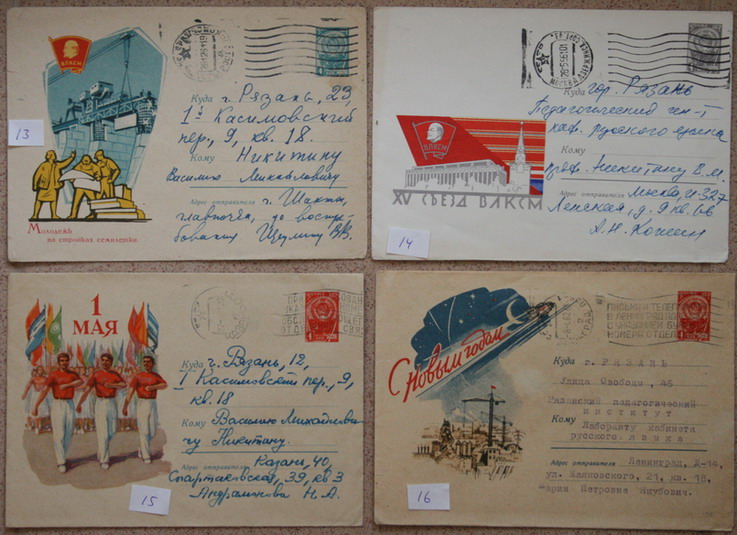 ВЛКСМ
Куда г. Рязань, 23,
1й Касимовский
пер., 9, кв. 18.
Кому Никитину
Василию Михайловичу
Адрес отправителя г. Шахты,
главпочта, до востре-
бования
13
Молодежь
на стройках семилетки.
МОСКВА
Куда гор. Рязань
Педагогический ин-т
каф. русского языка
Кому
проф. Никитину В. М.
Адрес отправителя Москва, И-327
Ленская, д. 9 кв. 66
А. Н. Кожин
ВЛКСМ
XV СЪЕЗД ВЛКСМ
14
1
МАЯ
Куда г. Рязань, 12,
1 Касимовский пер., 9,
кв. 18
Кому Василию Михайлови-
чу Никитину.
Адрес отправителя Казань, 40,
Спартаковская, 39, кв 3
Андрамонова Н. А.
15
С Новым годом
ПИСЬМА И ТЕЛЕГ
В ЛЕНИНГРАД
С УКАЗАНИЕМ
НОМЕРА ОТДЕЛ
Куда г. РЯЗАНЬ
Улица Свободы, 45
Рязанский педагогический
институт
Кому Лаборанту кабинета
русского языка
Адрес отправителя Ленинград, Д-14,
ул. Маяковского, 21, кв. 18,
Марии Петровне Якубович.
16